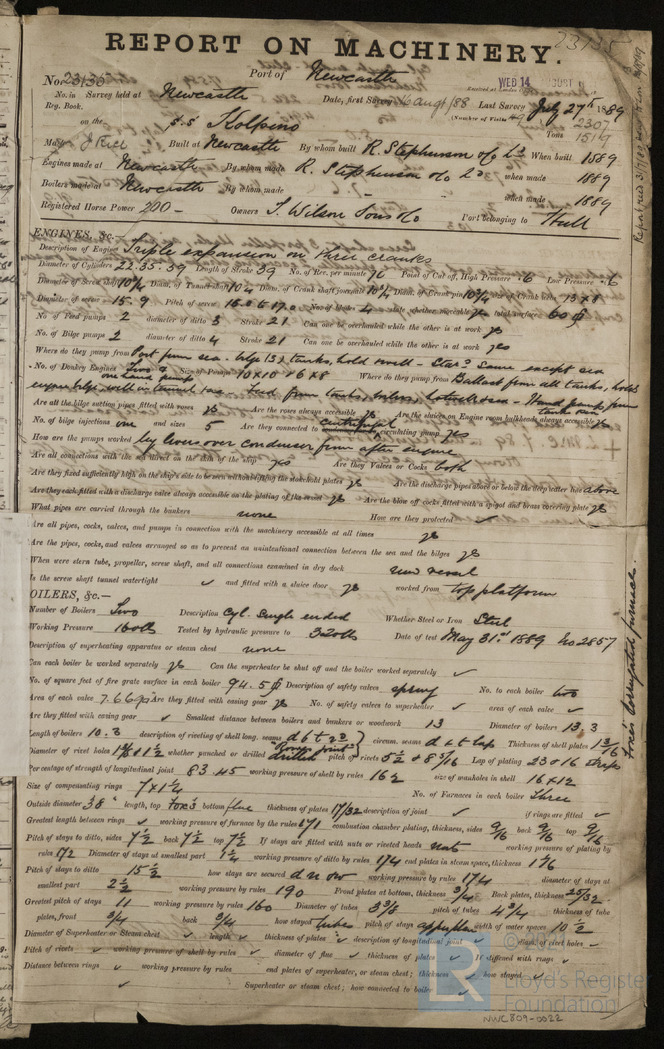 23135
REPORT ON MACHINERY.
No. 23135 Port of Newcastle WED 14 AUGUST
No. in Survey held at Newcastle Date, first Survey 16 Augt/88 Last Survey July 27th 1889
Reg. Book. (Number of Visits
on the S.S. Kolpino Tons 2307 1514
Master J. Rice Built at Newcastle By whom built R. Stephenson & Co Ld When built 1889
Engines made at Newcastle By whom made R. Stephenson & Co Ld when made 1889
Boilers made at Newcastle By whom made when made 1889
Registered Horse Power 200 - Owners T. Wilson Sons & Co Port belonging to Hull
ENGINES, &c.—
Description of Engine Triple expansion on three cranks
Diameter of Cylinders 22.35.59 Length of Stroke 39 No. of Rev. per minute 76 Point of Cut off, High Pressure .6 Low Pressure .6
Diameter of Screw shaft 10¾ Diam. of Tunnel shaft 10¼ Diam. of Crank shaft journals 10¾ Diam. of Crank pin 10¾ size of Crank webs 13 x 8
Diameter of screw 15.9 Pitch of screw 15.0 to 17.0 No. of blades 4 state whether moveable yes total surface 60 ft
No. of Feed pumps 2 diameter of ditto 3 Stroke 21 Can one be overhauled while the other is at work yes
No. of Bilge pumps 2 diameter of ditto 4 Stroke 21 Can one be overhauled while the other is at work yes
Where do they pump from Port from sea. bilge 132 tanks, hold & well - Stard same except sea
No. of Donkey Engines Two & one hand pump Size of Pumps 10 x 10 & 6 x 8 Where do they pump from Ballast from all tanks, holds
engine bilge, well in tunnel, sea. Feed from tanks, boilers, hotwell & sea - Hand pump from tanks & sea
Are all the bilge suction pipes fitted with roses yes Are the roses always accessible yes Are the sluices on Engine room bulkheads always accessible yes
No. of bilge injections one and sizes 5 Are they connected to centrifugal circulating pump yes
How are the pumps worked by levers over condenser from after engine
Are all connections with the sea direct on the skin of the ship yes Are they Valves or Cocks both
Are they fixed sufficiently high on the ship's side to be seen without lifting the stokehold plates yes Are the discharge pipes above or below the deep water line above
Are they each fitted with a discharge valve always accessible on the plating of the vessel yes Are the blow off cocks fitted with a spigot and brass covering plate yes
What pipes are carried through the bunkers none How are they protected ✓
Are all pipes, cocks, valves, and pumps in connection with the machinery accessible at all times yes
Are the pipes, cocks, and valves arranged so as to prevent an unintentional connection between the sea and the bilges yes
When were stern tube, propeller, screw shaft, and all connections examined in dry dock new vessel
Is the screw shaft tunnel watertight ✓ and fitted with a sluice door yes worked from top platform
OILERS, &c.—
Number of Boilers Two Description Cyl. Single ended Whether Steel or Iron Steel
Working Pressure 160 lbs Tested by hydraulic pressure to 320 lbs Date of test May 31st 1889 No 2857
Description of superheating apparatus or steam chest none
Can each boiler be worked separately yes Can the superheater be shut off and the boiler worked separately ✓
No. of square feet of fire grate surface in each boiler 94.5 ft Description of safety valves spring No. to each boiler two
Area of each valve 7.66 Are they fitted with easing gear yes No. of safety valves to superheater ✓ area of each valve ✓
Are they fitted with easing gear ✓ Smallest distance between boilers and bunkers or woodwork 13 Diameter of boilers 13.3
Length of boilers 10.3 description of riveting of shell long. seams d b t circum. seams d & t lap Thickness of shell plates 1 3/16
Diameter of rivet holes whether punched or drilled drilled pitch of rivets 5½ & 8 7/16 Lap of plating 23 & 16 straps
Percentage of strength of longitudinal joint 83.45 working pressure of shell by rules 162 size of manholes in shell 16 x 12
Size of compensating rings 7 x 1½ No. of Furnaces in each boiler Three
Outside diameter 38" length, top Fox's bottom flue thickness of plates 17/32 description of joint ✓ if rings are fitted ✓
Greatest length between rings ✓ working pressure of furnace by the rules 171 combustion chamber plating, thickness, sides 9/16 back 9/16 top 9/16
Pitch of stays to ditto, sides 7½ back 7½ top 7½ If stays are fitted with nuts or riveted heads nuts working pressure of plating by
rules 172 Diameter of stays at smallest part 1¼ working pressure of ditto by rules 174 end plates in steam space, thickness 1 1/16
Pitch of stays to ditto 15½ how stays are secured d n & w working pressure by rules 174 diameter of stays at
smallest part 2½ working pressure by rules 190 Front plates at bottom, thickness ¾ Back plates, thickness 25/32
Greatest pitch of stays 11 working pressure by rules 160 Diameter of tubes 3⅜ pitch of tubes 4¾ thickness of tube
plates, front ¾ back ¾ how stayed tubes pitch of stays width of water spaces 10½
Diameter of Superheater or Steam chest ✓ length ✓ thickness of plates ✓ description of longitudinal joint ✓ diam. of rivet holes ✓
Pitch of rivets ✓ working pressure of shell by rules ✓ diameter of flue ✓ thickness of plates ✓ If stiffened with rings ✓
Distance between rings ✓ working pressure by rules end plates of superheater, or steam chest; thickness ✓ how stayed ✓
✓ Superheater or steam chest; how connected to boiler ✓
Fox's Corrugated furnaces.
LR
©
Lloyd's Register
Foundation
NWC809-0022